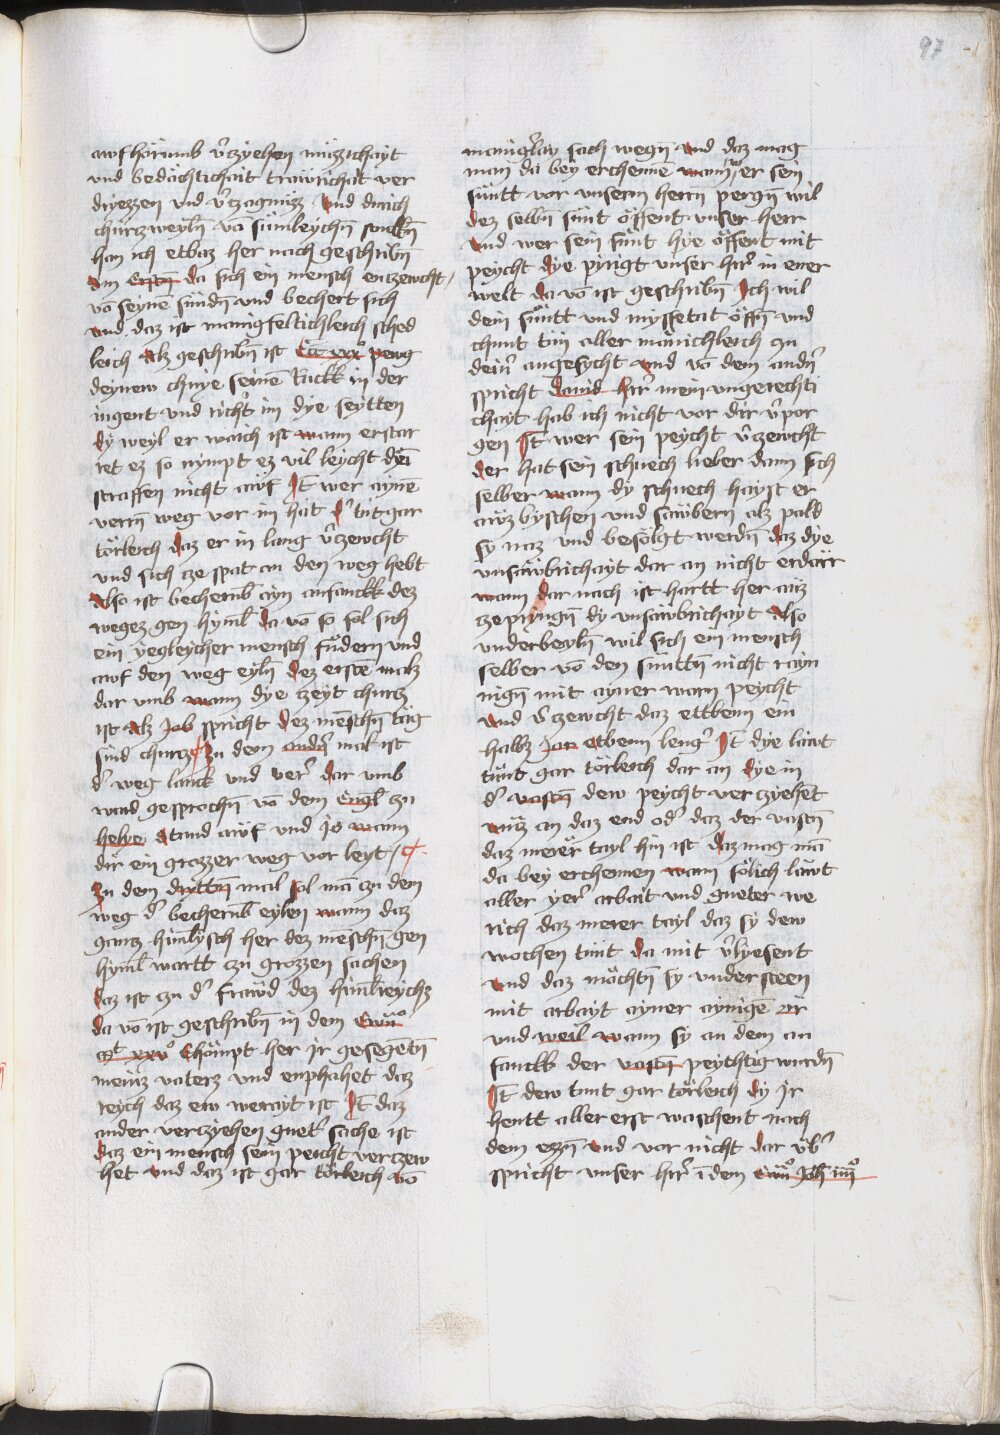 97
awfhörumb v̄czyehen müzzichayt
und bedächtichait trawrichait ver
dryezzen und v̄czagnüzz und durich
churczweyln̄ vō sümleychn̄ stukkn̄
han ich etbaz her nach geschribn̄
Am Erstn̄ da sich ein mensch enczewcht
vō seynē sündn̄ und bechert sich
und daz ist manigfeltichleich sched
leich Alz geschribn̄ ist Ecc̄ xxxº peug
deynew chnye seinē Rukk in der
iugent und richt̄ im dye seytten
dy weyl er waich ist wann erstar
ret ez so nympt ez vil leycht dein
straffen nicht awf It̄ wer aynē
verrn̄ weg vor im hat d̄ tüt gar
törleich daz er in lang v̄czewcht
und sich cze spat an den weg hebt
Also ist bechernb̄ ayn anfankk dez
wegez gen hyml̄ da vō so sol sich
ein yegleycher mensch füdern und
awf den weg eyln̄ dez erstē malz
dar umb wann dye czeyt churcz
ist Alz Job spricht dez mēschn̄ täg
sind churcz Zu dem andn̄ mal ist
d̄ weg lankk und ver̄ dar umb
ward gesprochn̄ vō dem Engl̄ czu
helye stand awf und ge wann
dir ein grozzer weg vor leyt
Zu dem dryttn̄ mal sol mā czu dem
weg d̄ bechernb̄ eylen wann daz
gancz himlysch her dez mēschn̄ gen
hyml̄ wartt czu grozzen sachen
daz ist czu d̄ frawd dez himlreychz
da vō ist geschribn̄ in dem Ewnº
mt̄ xxvº Chömpt her ir gesegētn̄
meinz vaterz und enphahet daz
reych daz ew werayt ist It̄ daz
ander verczyehen guet̄ sache ist
daz ein mensch sein peicht verczew
het und daz ist gar törleich vō
manigl̄ay sach wegn̄ und daz mag
man da bey erchennē wann wer sein
süntt vor unserm herrn̄ pergn̄ wil
dez selbn̄ sünt öffent unser herr
und wer sein sünt hye öffent mit
peycht dye pirigt unser her̄ in ener
welt da vō ist geschribn̄ Ich wil
dein süntt und myssetat öffn̄ und
chunt tün aller mänichleich czu
dein̄ angesycht und vō dem andn̄
spricht dauid her̄ mein ungerechti
chayt hab ich nicht vor dir v̄por
gen It̄ wer sein peycht v̄czewcht
der hat sein schuech lieber dann sich
selber wann dy schuech hayst er
auz byschen und sawbern alz pald
sy naz und besölgt werdn̄ daz dye
unsawbrichayt dar an nicht erdarr
wann dar nach ist hartt her auz
czepringn̄ dy unsawbrichayt Also
underbeyln̄ wil sich ein mensch
selber vō den süntt̄n nicht rayn
nign̄ mit ayner warn peycht
und v̄czewcht daz ettbenn ein
halbz Jar etbenn lenḡ It̄ dye läwt
tünt gar törleich dar an dye in
d̄ vastn̄ dew peycht verczyehet
uncz an daz end od̄ daz der vastn̄
daz merer tayl hin ist daz mag mā
da bey erchennen wann sölich läwt
aller yer̄ arbait und gueter we
rich daz merer tayl daz sy dew
wochen tunt da mit v̄lyesent
und daz möchtn̄ sy understeen
mit arbayt ayner aynigē eir
und weil wann sy an dem an
fankk der vastn̄ peychtig wurdn̄
It̄ dew tunt gar törleich dy Ir
hentt aller erst waschent nach
dem ezzn̄ und vor nicht dar üb̄
spricht unser her̄ ī dem ewnº Joh̄ iiiº